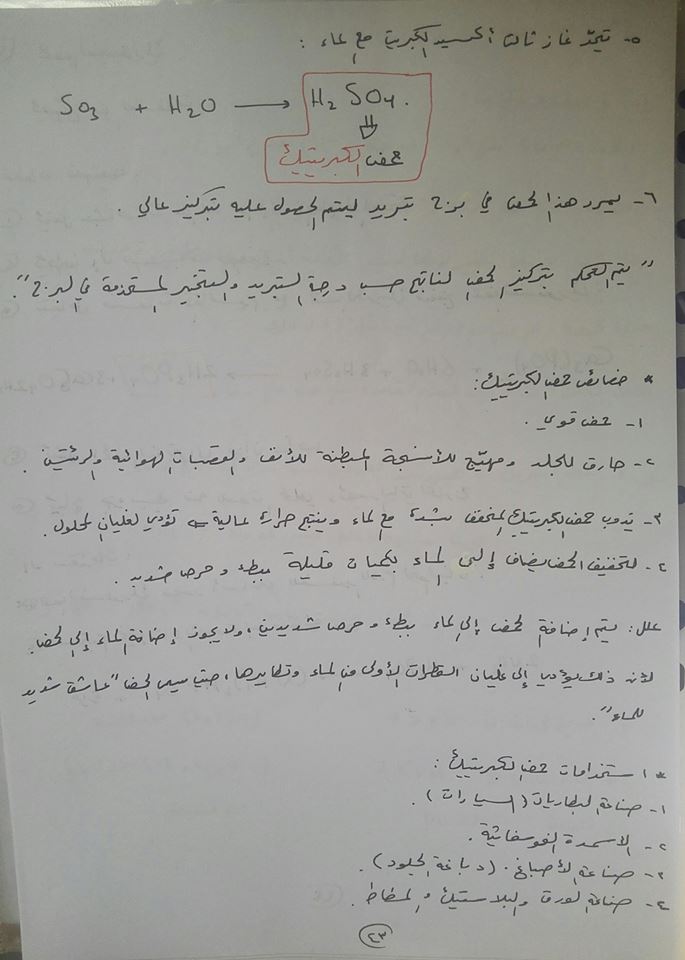 ٥- يتحد غاز ثالث أكسيد الكبريت مع الماء :
SO3 + H2O → H2SO4.
حمض الكبريتيك
٦- يمرر هذا الحمض في برج تبريد ليتم الحصول عليه بتركيز عالي .
"يتم التحكم بتركيز الحمض الناتج حسب درجة التبريد والتبخير المستخدمة في البرج".
* خصائص حمض الكبريتيك :
١- حمض قوي .
٢- حارق للجلد ومهيّج للأنسجة المبطنة للأنف والقصبات الهوائية والرئتين .
٣- يذوب حمض الكبريتيك المخفف بشدة مع الماء وينتج حرارة عالية تؤدي لغليان المحلول .
٤- لتخفيف الحمض يضاف إلى الماء بكميات قليلة ببطء وحرص شديد .
علل : يتم إضافة الحمض إلى الماء ببطء وحرص شديدين ، ولا يجوز إضافة الماء إلى الحمض.
لأن ذلك يؤدي إلى غليان القطرات الأولى من الماء وتطايرها ، حيث يسمى الحمض "عاشق شديد
للماء".
* استخدامات حمض الكبريتيك :
١- صناعة البطاريات (السيارات) .
٢- الاسمدة الفوسفاتية .
٣- صناعة الأصباغ . (دباغة الجلود) .
٤- صناعة الورق والبلاستيك والمطاط .
٤٣